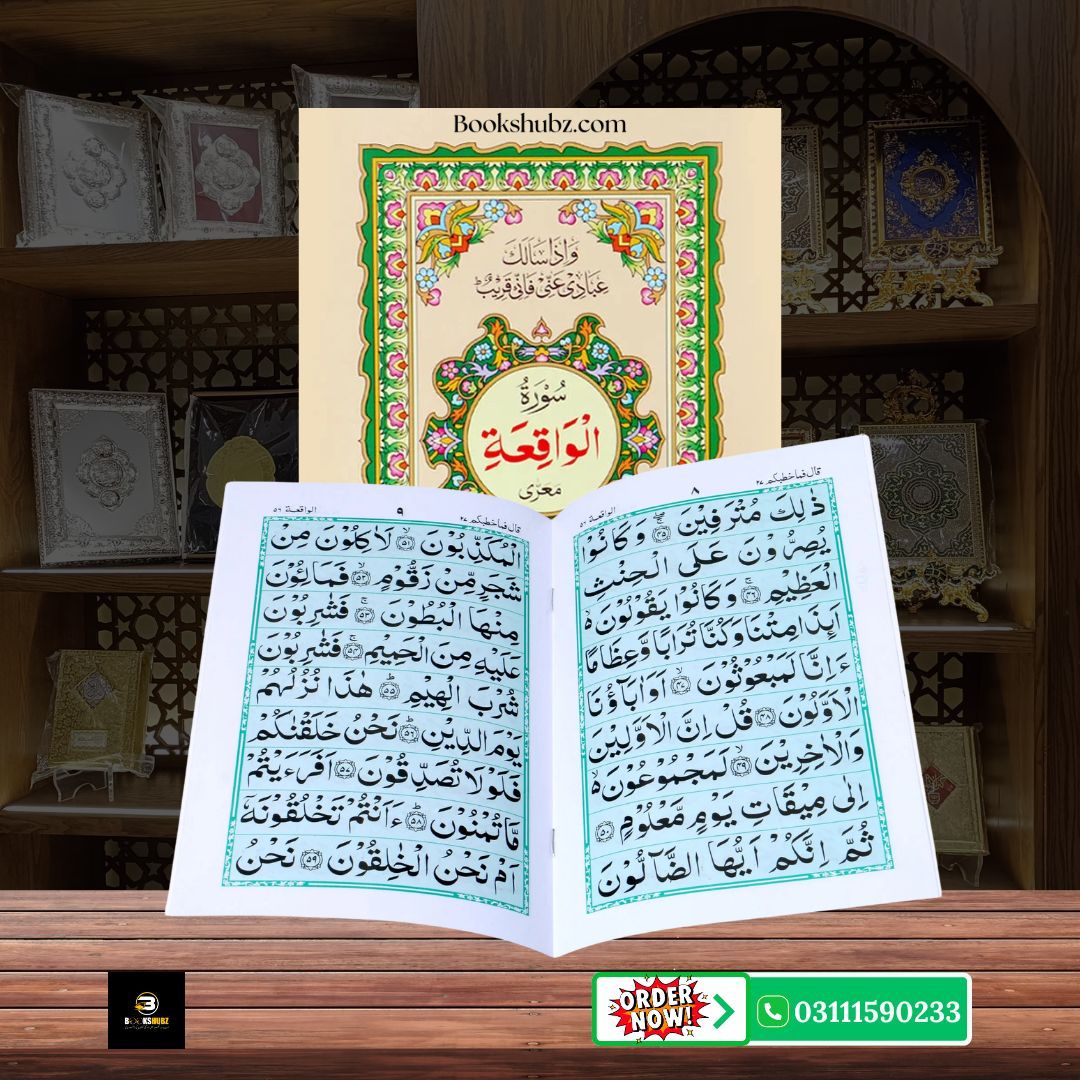 Bookshubz.com
وَاِذَا سَاَلَكَ
عِبَادِیْ عَنِّیْ فَاِنِّیْ قَرِیْبٌ ؕ
سُوْرَةُ
الْوَاقِعَةِ
مَعَرّٰی
قال فما خطبكم ٢٧
٨
الواقعة ٥٦
ذٰلِكَ مُتْرَفِیْنَ ﴿٤٥﴾ وَكَانُوْا
یُصِرُّوْنَ عَلَی الْحِنْثِ
الْعَظِیْمِ ﴿٤٦﴾ وَكَانُوْا یَقُوْلُوْنَ
اَىِٕذَا مِتْنَا وَكُنَّا تُرَابًا وَّعِظَامًا
ءَاِنَّا لَمَبْعُوْثُوْنَ ﴿٤٧﴾ اَوَاٰبَآؤُنَا
الْاَوَّلُوْنَ ﴿٤٨﴾ قُلْ اِنَّ الْاَوَّلِیْنَ
وَالْاٰخِرِیْنَ ﴿٤٩﴾ لَمَجْمُوْعُوْنَ
اِلٰی مِیْقَاتِ یَوْمٍ مَّعْلُوْمٍ ﴿٥٠﴾
ثُمَّ اِنَّكُمْ اَیُّهَا الضَّآلُّوْنَ
قال فما خطبكم ٢٧
٩
الواقعة ٥٦
الْمُكَذِّبُوْنَ ﴿٥١﴾ لَاٰكِلُوْنَ مِنْ
شَجَرٍ مِّنْ زَقُّوْمٍ ﴿٥٢﴾ فَمَالِـُٔوْنَ
مِنْهَا الْبُطُوْنَ ﴿٥٣﴾ فَشٰرِبُوْنَ
عَلَیْهِ مِنَ الْحَمِیْمِ ﴿٥٤﴾ فَشٰرِبُوْنَ
شُرْبَ الْهِیْمِ ﴿٥٥﴾ هٰذَا نُزُلُهُمْ
یَوْمَ الدِّیْنِ ﴿٥٦﴾ نَحْنُ خَلَقْنٰكُمْ
فَلَوْلَا تُصَدِّقُوْنَ ﴿٥٧﴾ اَفَرَءَیْتُمْ
مَّا تُمْنُوْنَ ﴿٥٨﴾ ءَاَنْتُمْ تَخْلُقُوْنَهٗۤ
اَمْ نَحْنُ الْخٰلِقُوْنَ ﴿٥٩﴾ نَحْنُ
BOOKSHUBZ
ORDER
NOW!
03111590233